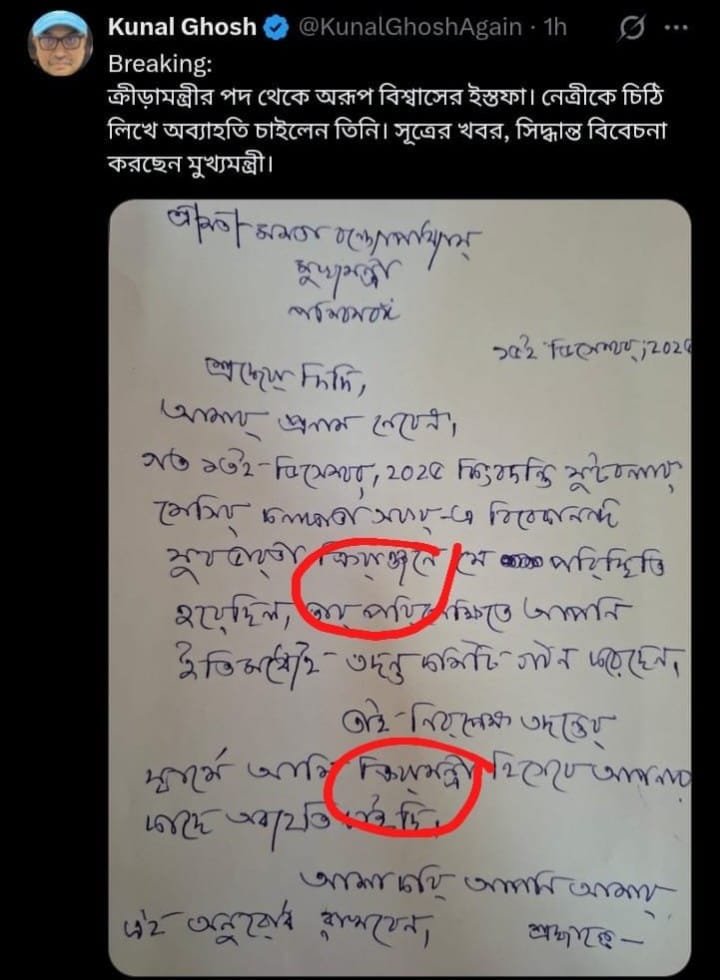 Kunal Ghosh @KunalGhoshAgain · 1h
Breaking:
ক্রীড়ামন্ত্রীর পদ থেকে অরূপ বিশ্বাসের ইস্তফা। নেত্রীকে চিঠি
লিখে অব্যাহতি চাইলেন তিনি। সূত্রের খবর, সিদ্ধান্ত বিবেচনা
করছেন মুখ্যমন্ত্রী।
শ্রীমতী মমতা বন্দ্যোপাধ্যায়
মুখ্যমন্ত্রী
পশ্চিমবঙ্গ
১৫ই ডিসেম্বর, 202৫
শ্রদ্ধেয় দিদি,
আমার প্রনাম নেবেন,
গত ১৩ই ডিসেম্বর, 202৫ কিংবদন্তি ফুটবলার
মেসির কলকাতা সফর-এ বিবেকানন্দ
যুবভারতী ক্রিয়াঙ্গনে যে পরিস্থিতি
হয়েছিল, তার পরিপ্রেক্ষিতে আপনি
ইতিমধ্যেই তদন্ত কমিটি গঠন করেছেন,
তাই নিরপেক্ষ তদন্তের
স্বার্থে আমি ক্রিয়ামন্ত্রী হিসেবে আপনার
কাছে অব্যহতি চাইছি,
আশা করি আপনি আমার
এই অনুরোধ রাখবেন,
শ্রদ্ধান্তে —